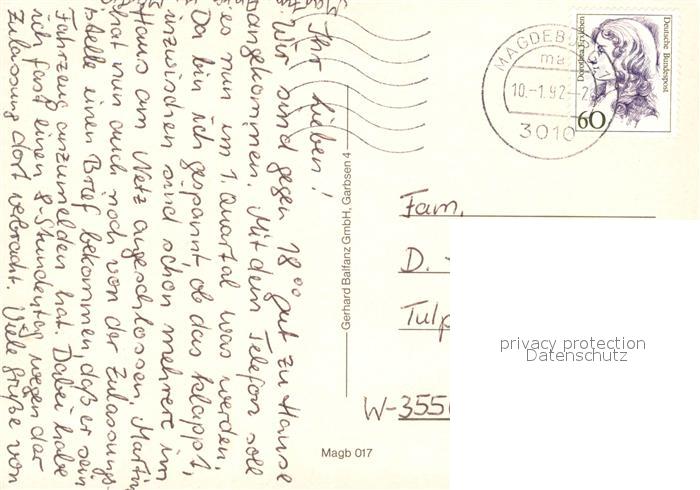 Ihr Lieben!
Wir sind gegen 18⁰⁰ gut zu Hause
angekommen. Mit dem Telefon soll
es nun im 1. Quartal was werden.
Da bin ich gespannt, ob das klappt,
inzwischen sind schon mehrere im
Haus am Netz angeschlossen. Martin
hat nun auch noch von der Zulassungs-
stelle einen Brief bekommen, daß er sein
Fahrzeug anzumelden hat. Dabei habe
ich fast einen 8-Stundentag wegen der
Zulassung dort verbracht. Viele Grüße von
Gerhard Balfanz GmbH, Garbsen 4
Magb 017
MAGDEBURG 1
ma
10.-1.92-2
3010
Deutsche Bundespost
Dorothea Erxleben
60
Fam.
D. -
Tulp
W-355
privacy protection
Datenschutz